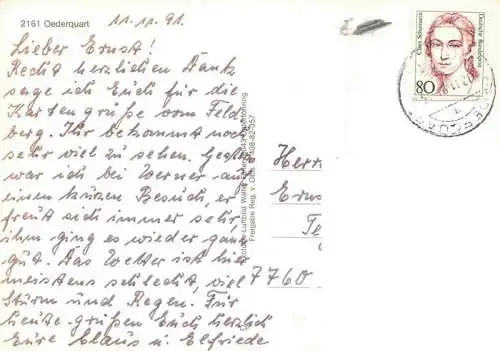 2161 Oederquart
11.11.91.
Lieber Ernst!
Recht herzlichen Dank
sage ich Euch für die
Kartengrüße vom Feld
berg. Ihr bekommt noch
sehr viel zu sehen. Gestern
war ich bei Werner auf
einen kurzen Besuch, er
freut sich immer sehr,
ihm ging es wieder ganz
gut. Das Wetter ist hier
meistens schlecht, viel
Sturm und Regen. Für
heute grüßen Euch herzlich
Eure Claus u. Elfriede
Freigabe Reg. v. Obb.
Herrn
Erns
Te
7760
Clara Schumann
Deutsche Bundespost
80